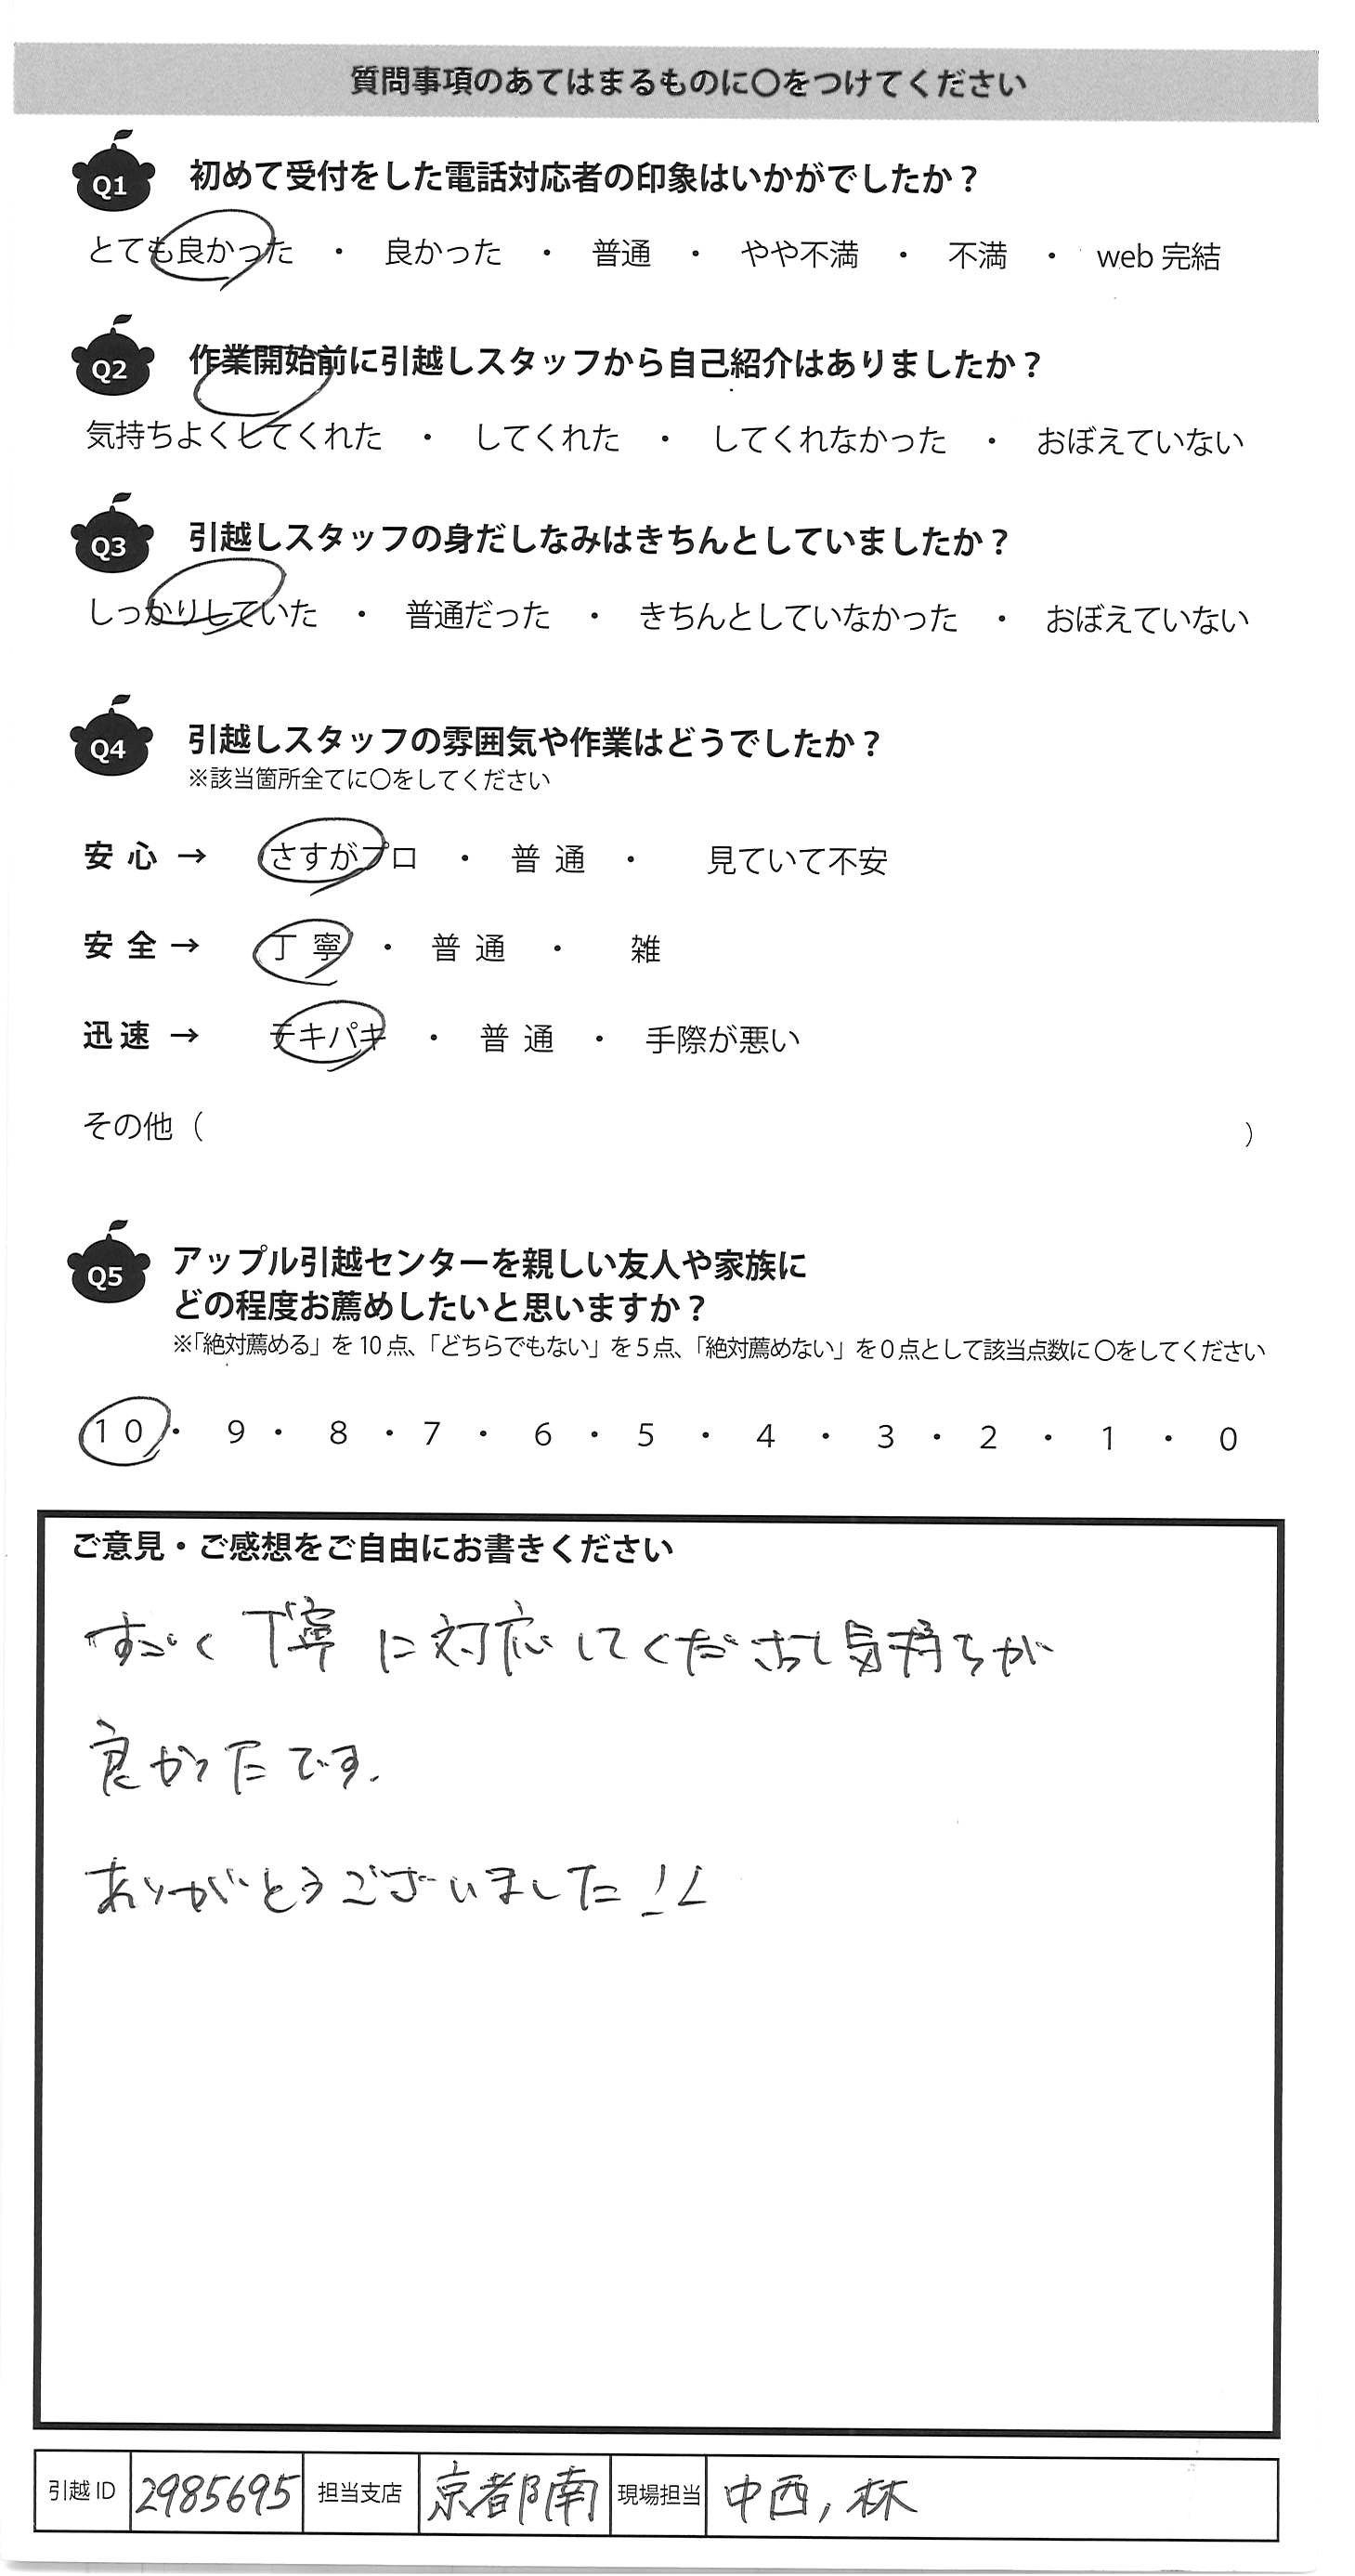 質問事項のあてはまるものに〇をつけてください
Q1 初めて受付をした電話対応者の印象はいかがでしたか？
とても良かった ・ 良かった ・ 普通 ・ やや不満 ・ 不満 ・ web 完結
Q2 作業開始前に引越しスタッフから自己紹介はありましたか？
気持ちよくしてくれた ・ してくれた ・ してくれなかった ・ おぼえていない
Q3 引越しスタッフの身だしなみはきちんとしていましたか？
しっかりしていた ・ 普通だった ・ きちんとしていなかった ・ おぼえていない
Q4 引越しスタッフの雰囲気や作業はどうでしたか？
※該当箇所全てに〇をしてください
安 心 → さすがプロ ・ 普 通 ・ 見ていて不安
安 全 → 丁 寧 ・ 普 通 ・ 雑
迅 速 → テキパキ ・ 普 通 ・ 手際が悪い
その他（ ）
Q5 アップル引越センターを親しい友人や家族に
どの程度お薦めしたいと思いますか？
※「絶対薦める」を 10 点、「どちらでもない」を 5 点、「絶対薦めない」を 0 点として該当点数に 〇をしてください
10 ・ 9 ・ 8 ・ 7 ・ 6 ・ 5 ・ 4 ・ 3 ・ 2 ・ 1 ・ 0
ご意見・ご感想をご自由にお書きください
すごく丁寧に対応してくださって気持ちが
良かったです.
ありがとうございました!!
引越 ID 2985695 担当支店 京都南 現場担当 中西, 林